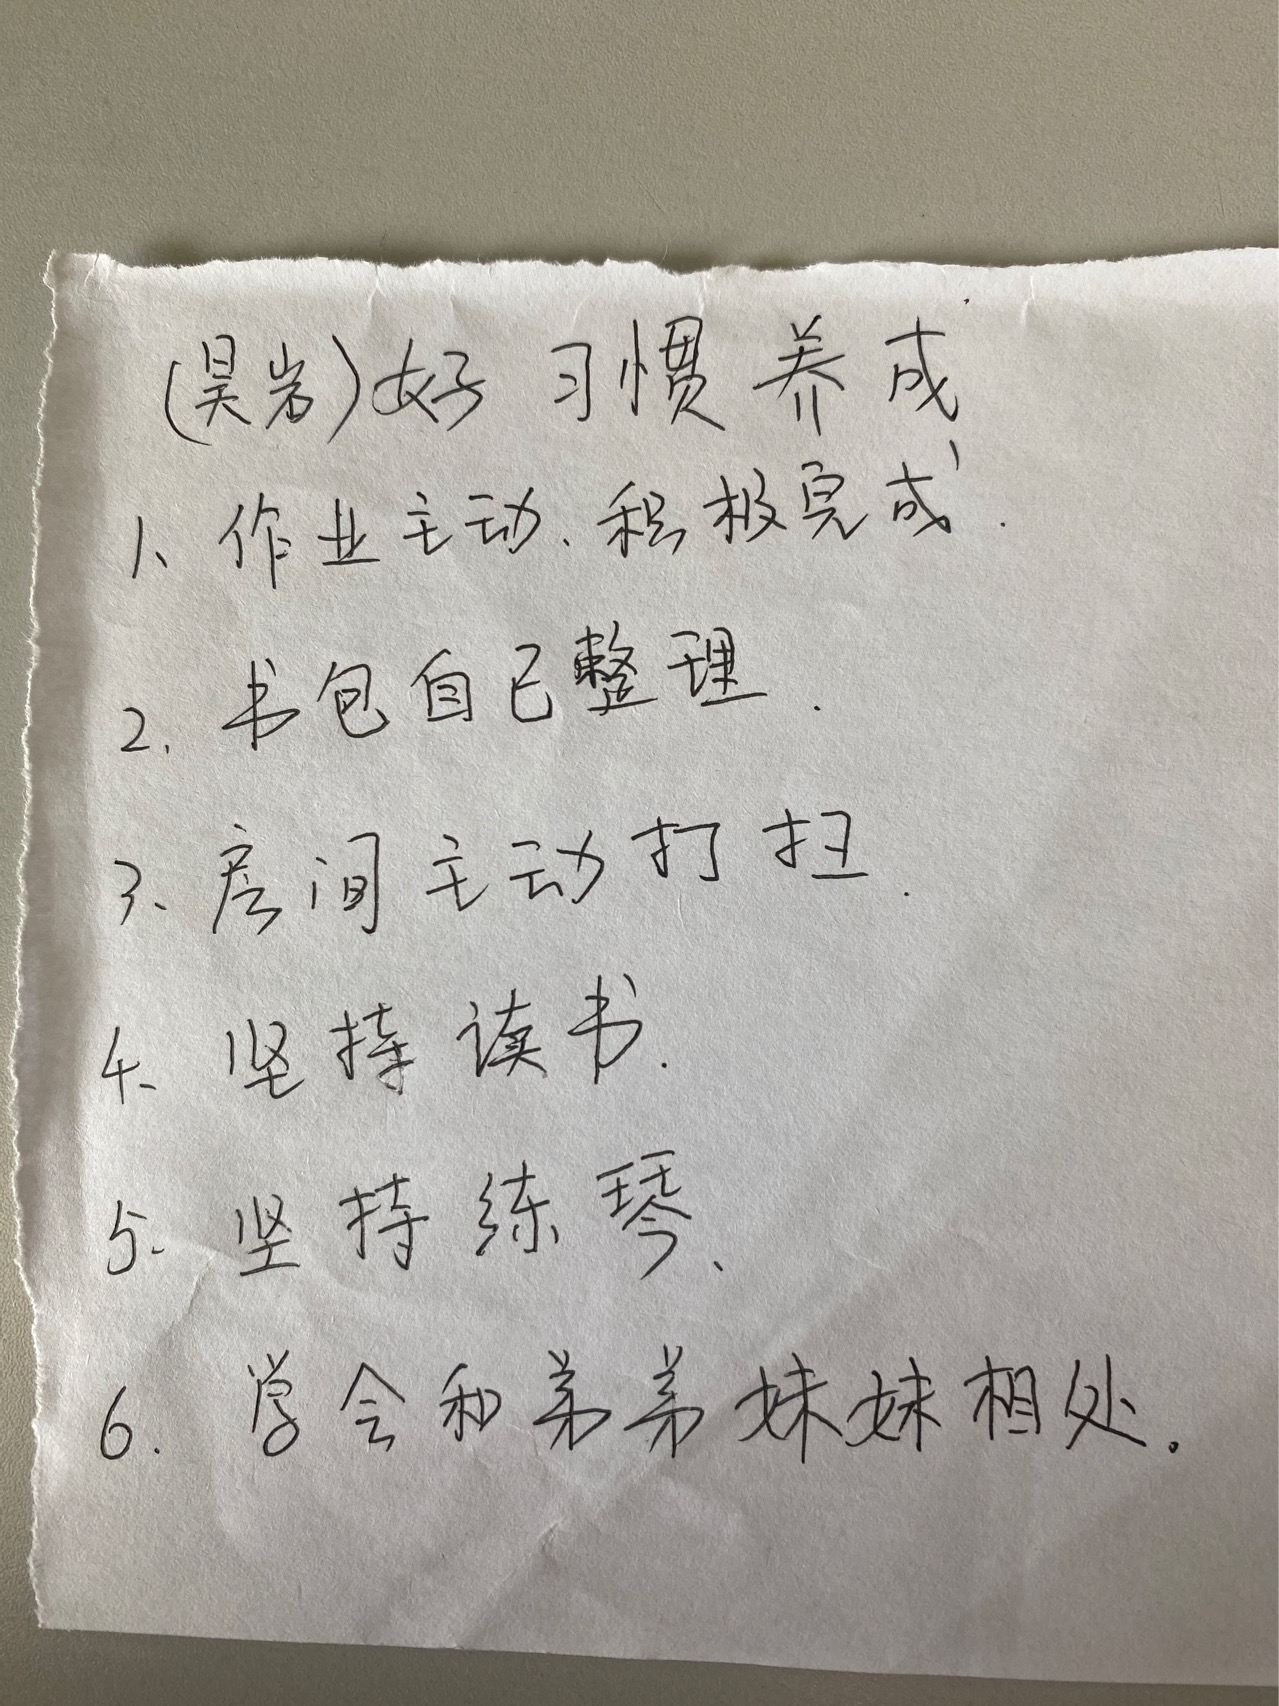 (昊岩)好习惯养成
1、作业主动、积极完成.
2.书包自己整理.
3、房间主动打扫.
4、坚持读书.
5.坚持练琴、
6.学会和弟弟妹妹相处.